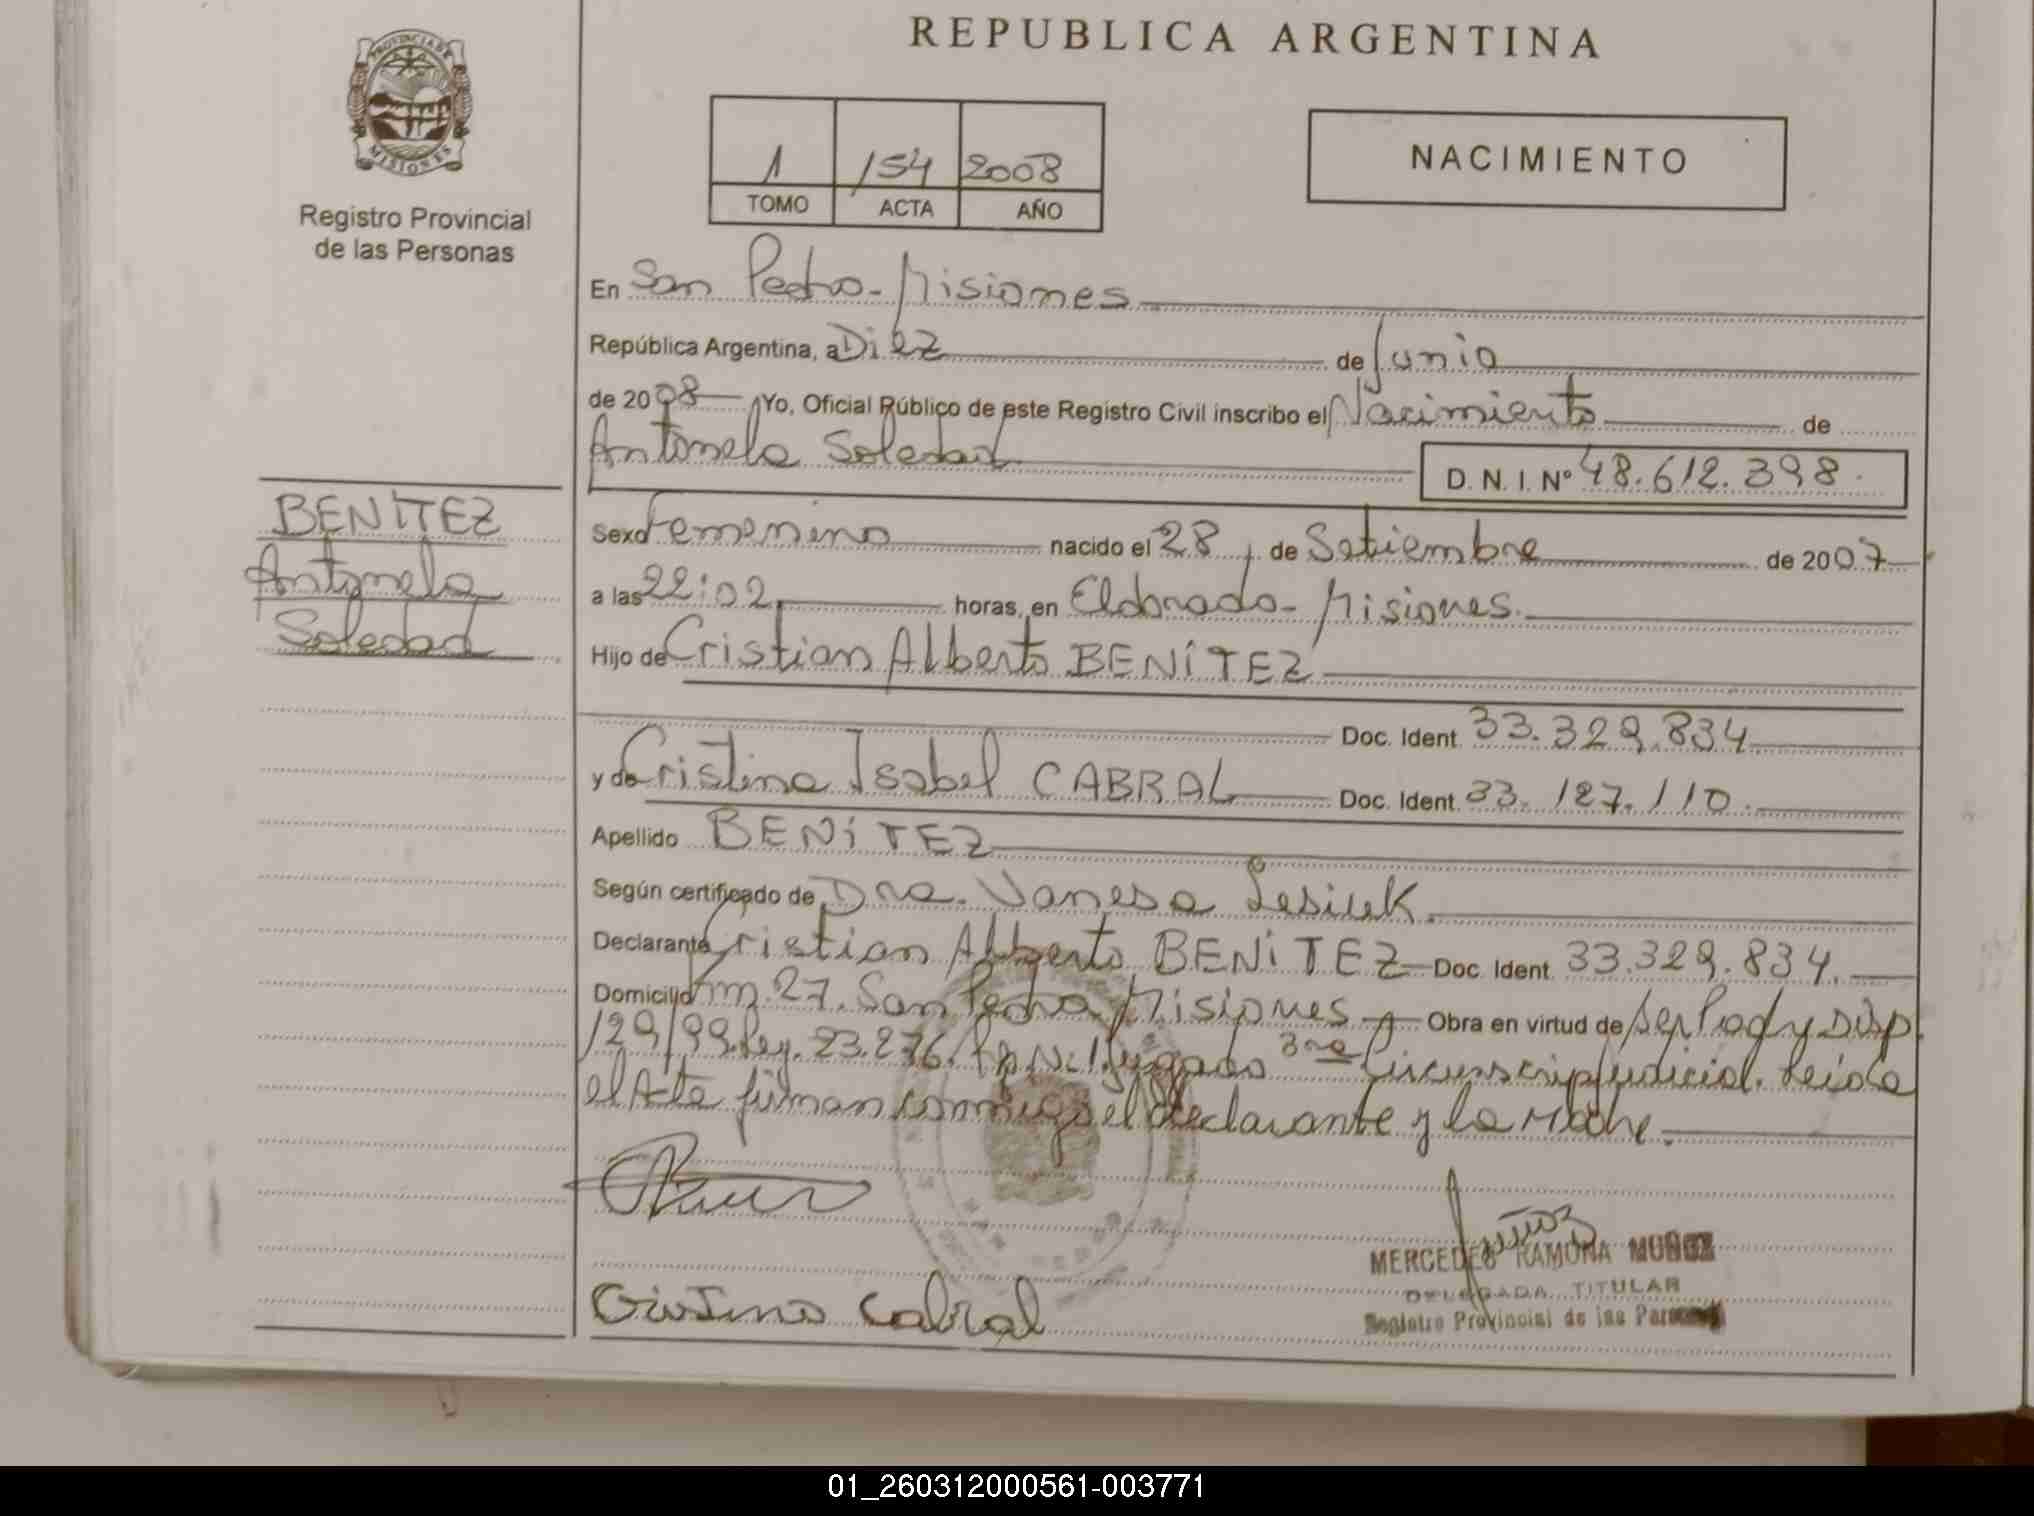 PROVINCIA DE
MISIONES
Registro Provincial
de las Personas
REPUBLICA ARGENTINA
1 154 2008
TOMO ACTA AÑO
NACIMIENTO
En San Pedro - Misiones
República Argentina, a Diez de Junio
de 2008 Yo, Oficial Público de este Registro Civil inscribo el Nacimiento de
Antonela Soledad
D. N. I. Nº 48.612.398.
BENÍTEZ
Antonela
Soledad
Sexo Femenino nacido el 28 de Setiembre de 2007
a las 22:02 horas, en Eldorado - Misiones.
Hijo de Cristian Alberto BENÍTEZ
Doc. Ident. 33.329.834
y de Cristina Isabel CABRAL Doc. Ident. 33.127.110.
Apellido BENÍTEZ
Según certificado de Dra. Vanesa Lesiuk.
Declarante Cristian Alberto BENÍTEZ Doc. Ident. 33.329.834.
Domicilio Km. 27. San Pedro Misiones Obra en virtud de Disp.
129/99. Ley. 23.276. Juzgado 3ra Circunscrip Judicial. Leída
el Acta firman conmigo el declarante y la Madre.
Cristina Cabral
MERCEDES RAMONA MUÑOZ
DELEGADA TITULAR
Registro Provincial de las Personas
01_260312000561-003771